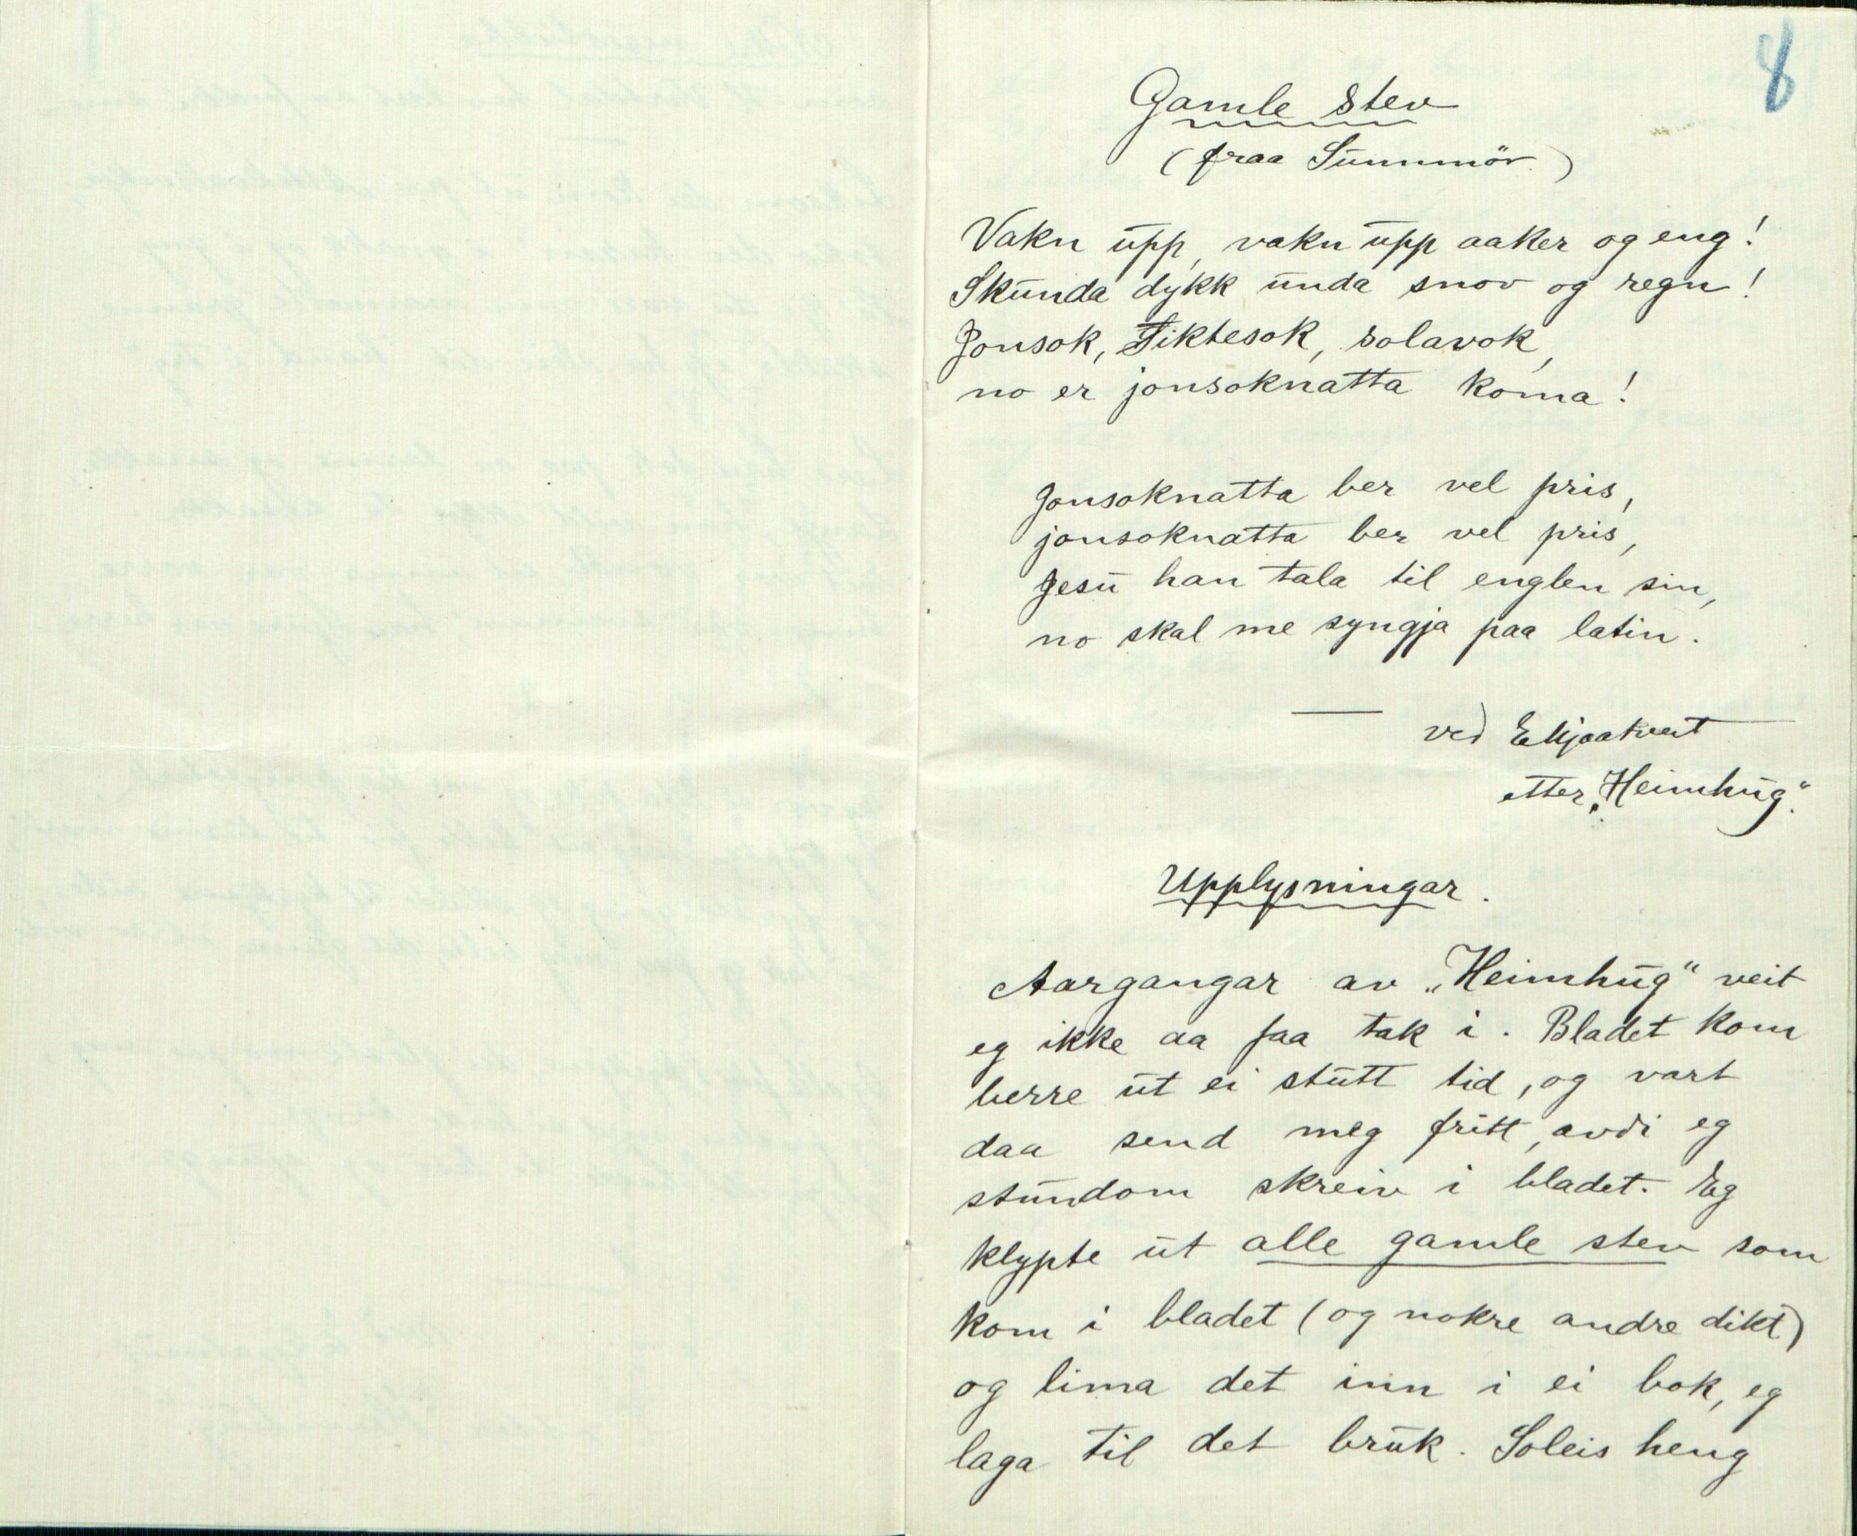 8
Gamle stev
(fraa Sunnmör.)
Vakn upp, vakn upp aaker og eng!
Skunda dykk unda snov og regn!
Jonsok, Tiktesok, solavok,
no er jonsoknatta koma!
Jonsoknatta ber vel pris,
jonsoknatta ber vel pris,
Jesu han tala til englen sin,
no skal me syngja paa latin.
ved E Mjaatveit
etter „Heimhug“.
Upplysningar.
Aargangar av „Heimhug“ veit
eg ikke aa faa tak i. Bladet kom
berre ut ei stutt tid, og vart
daa send meg fritt, avdi eg
stundom skreiv i bladet. Eg
klypte ut alle gamle stev som
kom i bladet (og nokre andre dikt)
og lima det inn i ei bok, eg
laga til det bruk. Soleis heng